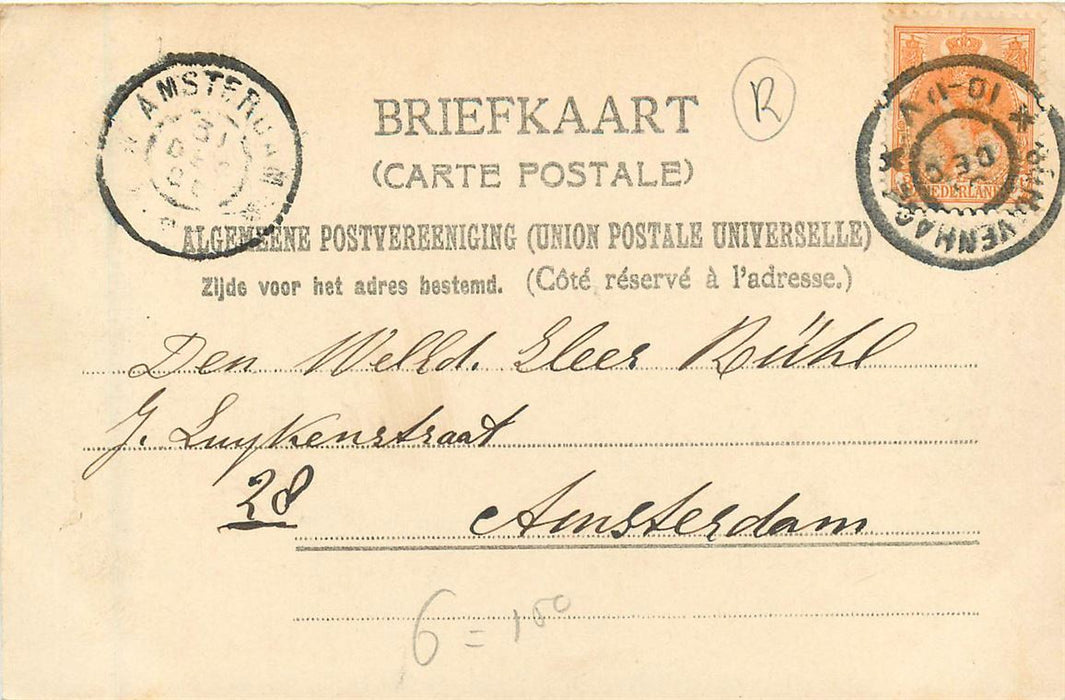 AMSTERDAM
31 DEC
R
NEDERLAND
'S GRAVENHAGE
10-11 V
30 DEC
BRIEFKAART
(CARTE POSTALE)
ALGEMEENE POSTVEREENIGING (UNION POSTALE UNIVERSELLE)
Zijde voor het adres bestemd. (Côté réservé à l'adresse.)
Den Heer Rühl
J. Luykenstraat
28 Amsterdam
6 = 150